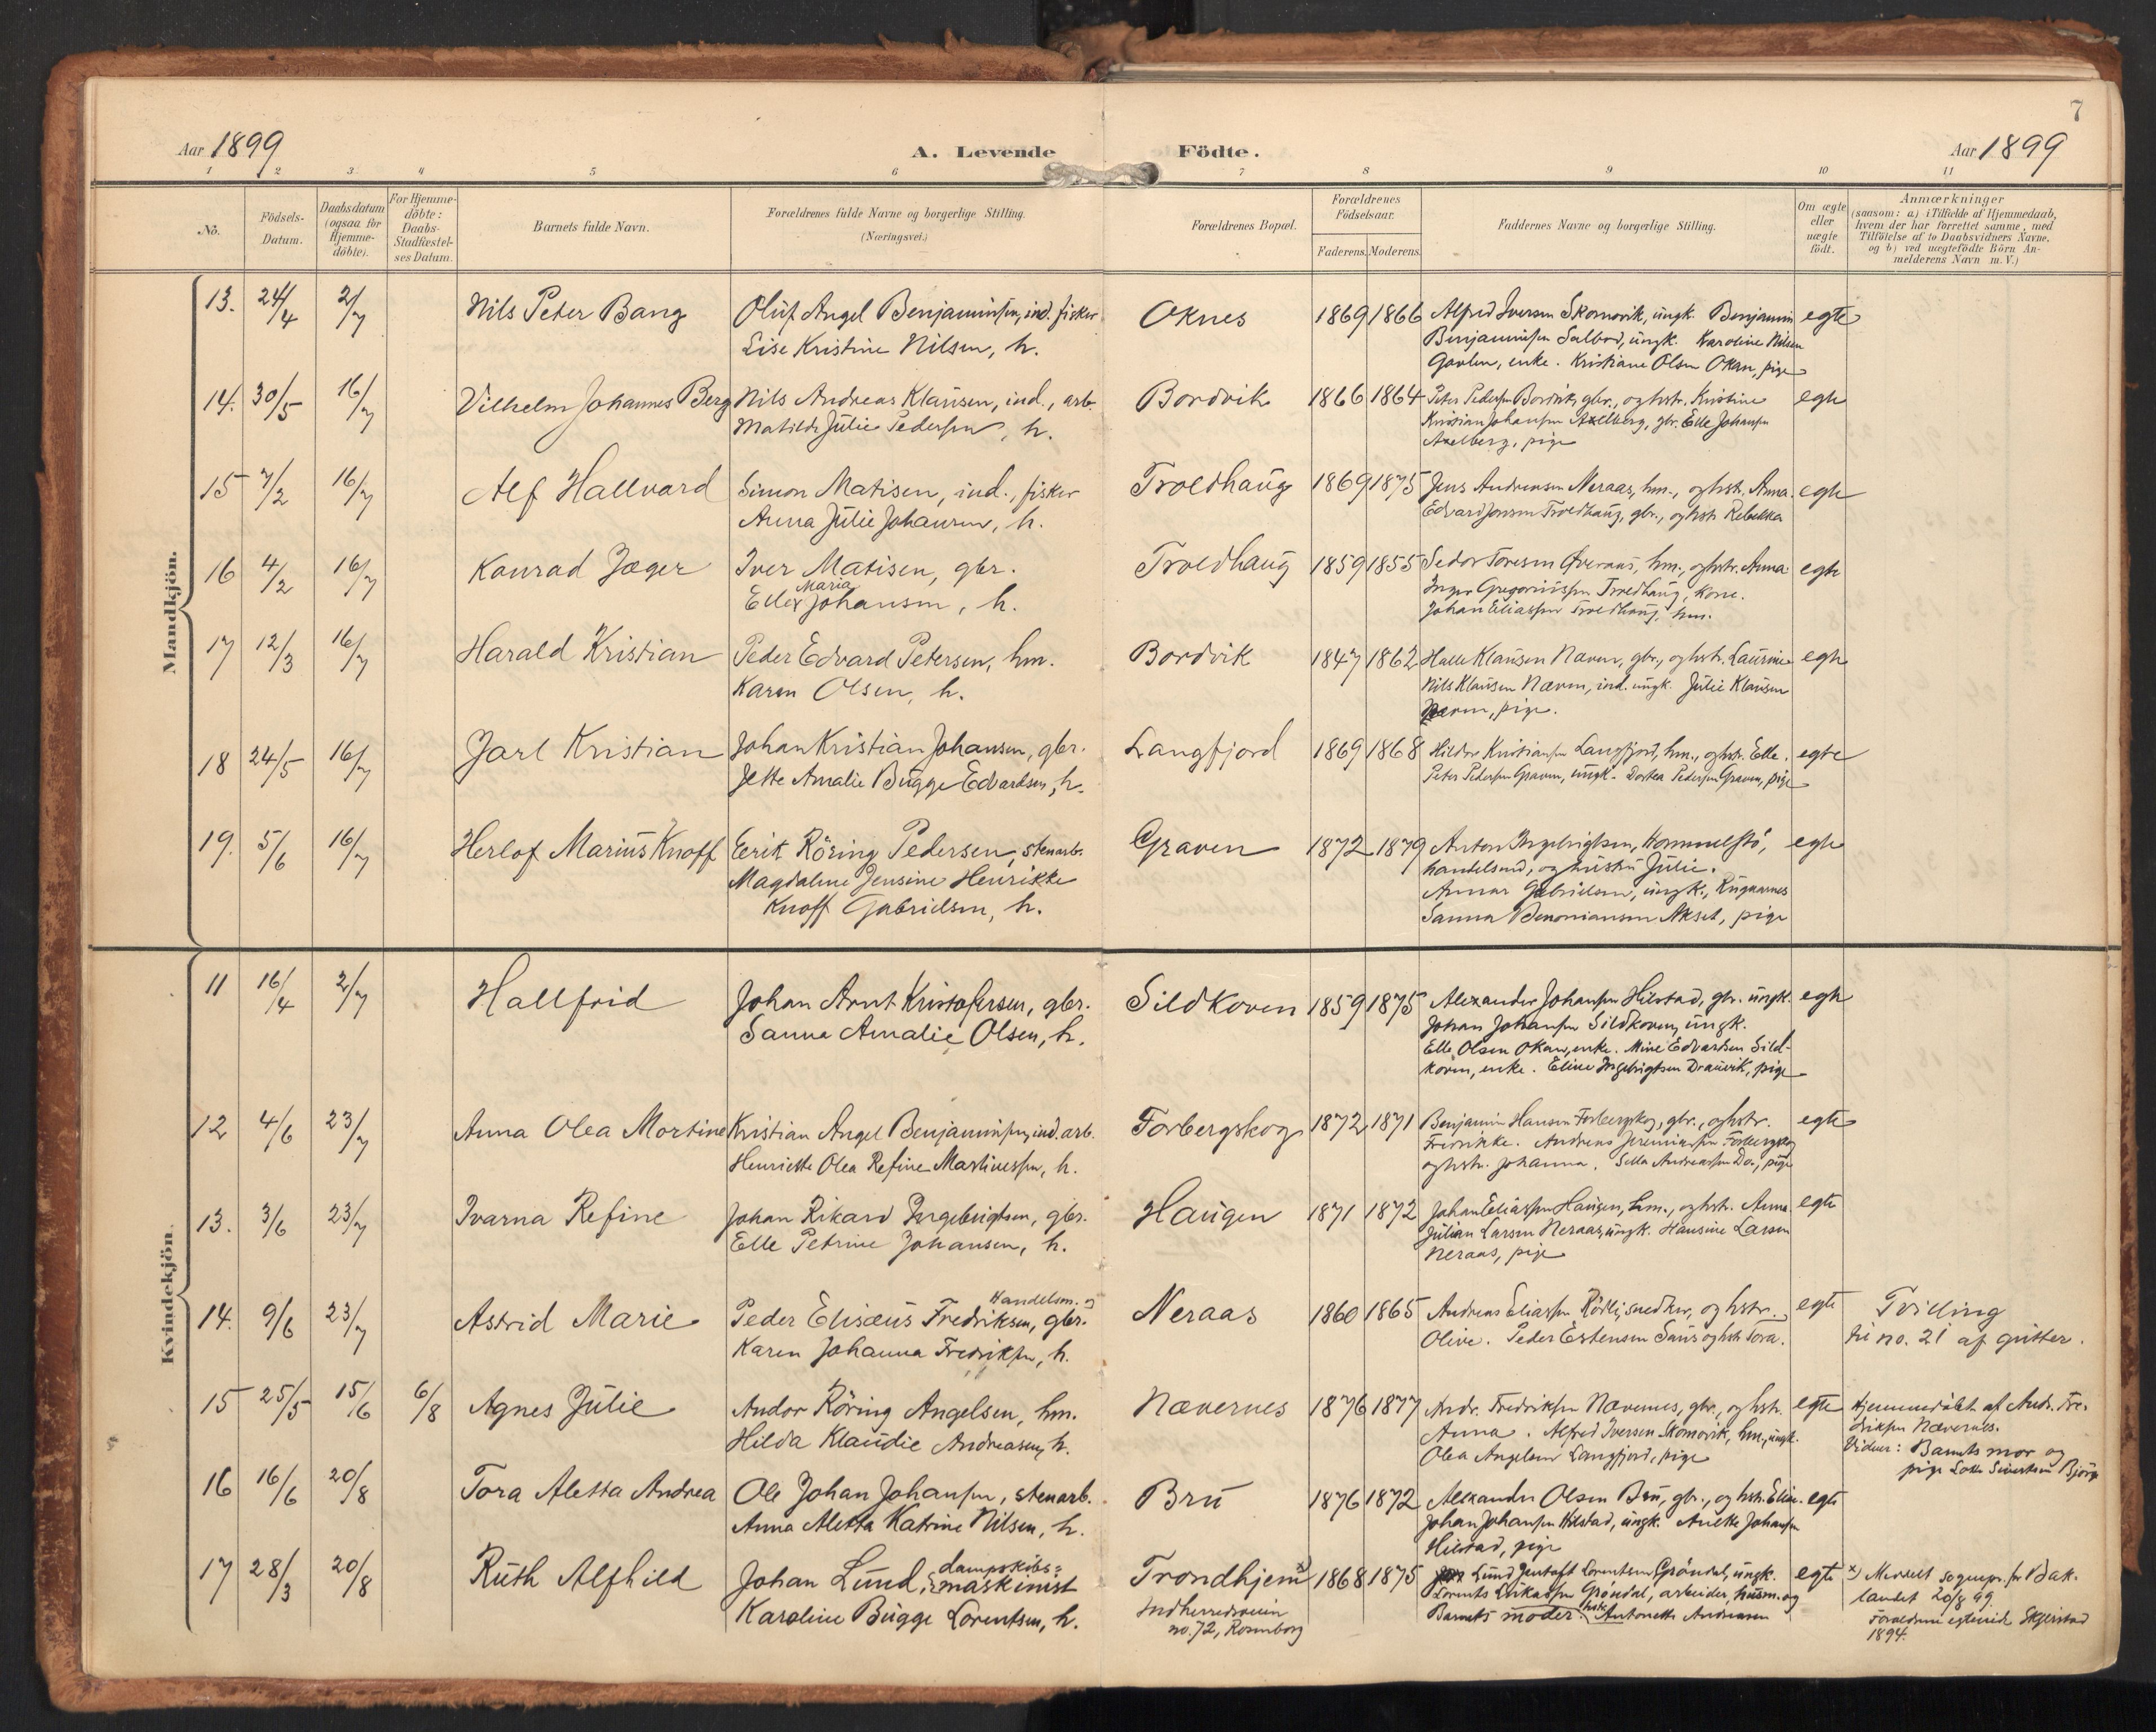 7
Aar 1899 A. Levende Födte. Aar 1899
1 2 3 4 5 6 7 8 9 10 11
No. Födsels-Datum. Daabsdatum (ogsaa for Hjemme-döbte). For Hjemme-döbte: Daabs-Stadfæstel-ses Datum. Barnets fulde Navn. Forældrenes fulde Navne og borgerlige Stilling. (Næringsvei.) Forældrenes Bopæl. Forældrenes Födselsaar. Faderens. Moderens. Faddernes Navne og borgerlige Stilling. Om ægte eller uægte födt. Anmærkninger (saasom: a) i Tilfælde af Hjemmedaab, hvem der har forrettet samme, med Tilföielse af to Daabsvidners Navne, og b) ved uægtefödte Börn An-melderens Navn m.V.)
Mandkjön.
13. 24/4 2/7 Nils Peter Bang Oluf Angel Benjaminsen, ind. fisker Oknes 1869 1866 Alfred Iversen Skomovik, ungk. Benjamin egte
Lise Kristine Nilsen, h. Benjaminsen Salbod, ungk. Karoline Nilsen
enke. Kristiane Olsen Okan, pige
14. 30/5 16/7 Vilhelm Johannes Berg Nils Andreas Klausen, ind., arb. Bordvik 1866 1864 Peter Pedersen Bordvik, gbr., og hstr. Kristine egte
Matilde Julie Pedersen, h. Kristian Johansen Axelberg, gbr. Elle Johansen
Axelberg, pige
15 7/2 16/7 Alf Hallvard Simon Matisen, ind., fisker Troldhaug 1869 1875 Jens Andreasen Neraas, hm., og hstr. Anna. egte
Anna Julie Johansen, h. Edvard Jonsen Troldhaug, gbr., og hstr. Rebekka
16 4/2 16/7 Konrad Jæger Iver Matisen, gbr. Troldhaug 1859 1855 Sedor Toresen Øveraas, hm., og hstr. Anna egte
Ellen Maria Johansen, h. Inger Gregoriussen Troldhaug, kone.
Johan Eliassen Troldhaug, hm.
17 12/3 16/7 Harald Kristian Peder Edvard Petersen, hm. Bordvik 1847 1862 Halle Klausen Næven, gbr., og hstr. Laurine egte
Karen Olsen, h. Nils Klausen Næven, ind. ungk. Julie Klausen
Næven, pige.
18 24/5 16/7 Jarl Kristian Johan Kristian Johansen, gbr. Langfjord 1869 1868 Hildor Kristiansen Langfjord, hm., og hstr. Elle. egte
Jette Amalie Bugge Edvardsen, h. Peter Pedersen Graven, ungk. Dortea Pedersen Graven, pige
19. 5/6 16/7 Herlof Marius Knoff Eerik Röring Pedersen, stenarb. Graven 1872 1879 Anton Ingebrigtsen, Hommelstö, egte
Magdalene Jensine Henrikke handelsmd, og hustru Julie.
Knoff Gabrielsen, h. Annar Gabrielsen, ungk., Rugaarnes
Sanna Benoniansen Akset, pige
Kvindekjön.
11 16/4 2/7 Hallfrid Johan Arnt Kristofersen, gbr. Sildkoven 1859 1875 Alexander Johansen Hilstad, gbr. ungk. egte
Sanna Amalie Olsen, h. Johan Johansen Sildkoven, ungk.
Elle Olsen Okan, enke. Mine Edvardsen Sild-
koven, enke. Eline Ingebrigtsen Drauvik, pige
12 4/6 23/7 Anna Olea Mortine Kristian Angel Benjaminsen, ind. arb. Forbergskog 1872 1871 Benjamin Hansen Forbergskog, gbr., og hstr. egte
Henriette Olea Refine Martinessen, h. Fredrikke. Andreas Jeremiassen Forbergskog
og hstr. Johanna. Sella Andreassen Do., pige
13. 3/6 23/7 Ivarna Refine Johan Rikard Ingebrigtsen, gbr. Haugen 1871 1872 Johan Eliassen Haugen, hm., og hstr. Anna. egte
Elle Petrine Johansen, h. Julian Larsen Neraas, ungk. Hansine Larsen
Neraas, pige
14. 9/6 23/7 Astrid Marie Peder Elisæus Fredriksen, Handelsm. og gbr. Neraas 1860 1865 Andreas Eliassen Rödli, snedker, og hstr. egte Tvilling
Karen Johanna Fredriksen, h. Olive. Peder Estensen Saus og hstr. Tora. til no. 21 af gutter.
15 25/5 15/6 6/8 Agnes Julie Andor Röring Angelsen, hm. Nævernes 1876 1877 Andr. Fredriksen Nævernes, gbr., og hstr. egte Hjemmedöbt af Andr. Fre-
Hilda Klaudie Andreasen, h. Anna. Alfred Iversen Skomovik, hm., ungk. driksen Nævernes.
Olea Angelsen Langfjord, pige Vidner: Barnets mor og
pige Lotte Sivertsen Bjørge
16 16/6 20/8 Tora Aletta Andrea Ole Johan Johansen, stenarb. Bru 1876 1872 Alexander Olsen Bru, gbr., og hstr. Elin. egte
Anna Aletta Katrine Nilsen, h. Johan Johansen Hilstad, ungk. Anette Johansen
Hilstad, pige
17 28/3 20/8 Ruth Alfhild Johan Lund, dampskibs=maskinist Trondhjem x) 1868 1875 Lund Jentoft Lorentsen Gröndal, ungk. egte x) Meddelt sognepr. for Bak-
Karoline Bugge Lorentsen, h. Indherredsveien Lorents Erikassen Gröndal, arbeider, husm. og landet 20/8 99.
no. 72, Rosenborg Barnets moder. hstr. Antonette Andreasen Forældrene egteviede Skjerstad
1894.